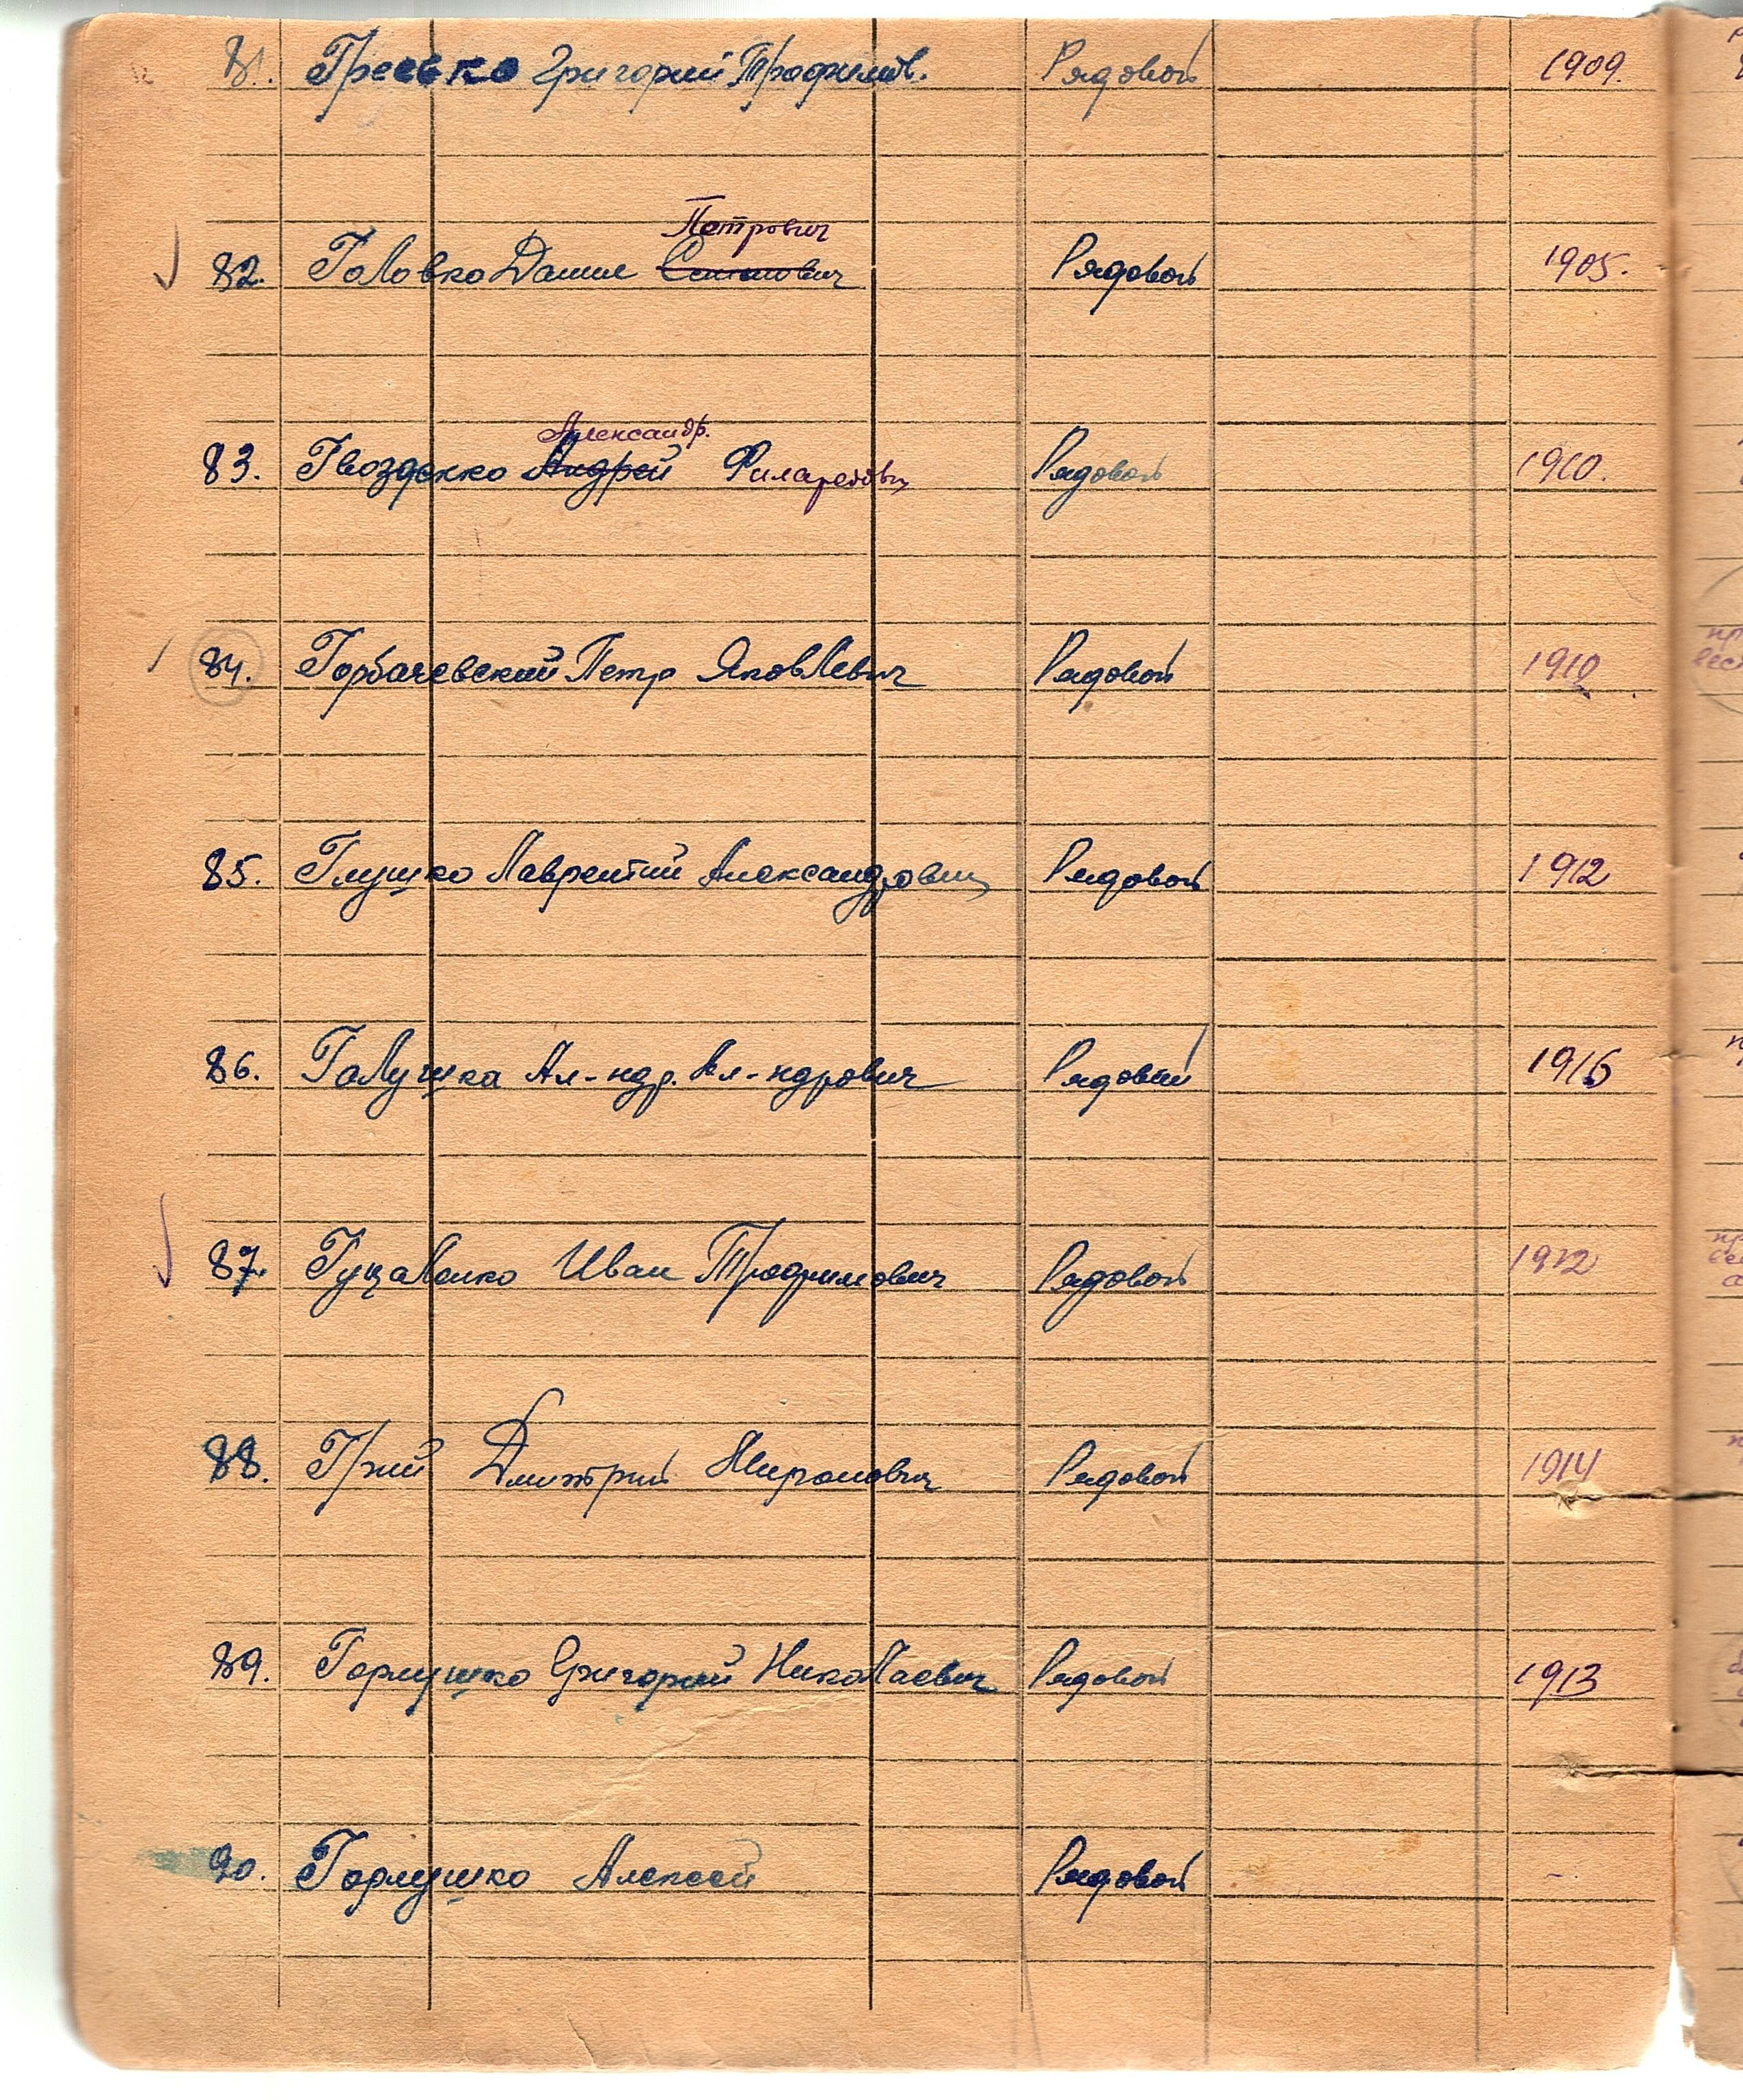 81. Гресько Григорий Трафимов. Рядовой 1909.
Петрович
82. Головко Данил Рядовой 1905.
Александр.
83. Гвозденко Андрей Филаретович Рядовой 1910.
84. Горбачевский Петр Яковлевич Рядовой 1910
85. Глушко Лаврентий Александрович Рядовой 1912
86. Галушка Ал-ндр. Ал-ндрович Рядовой 1916
87. Гуцаленко Иван Трофимович Рядовой 1912
88. Дмитрий Миронович Рядовой 1914
89. Гормушко Григорий Николаевич Рядовой 1913
90. Гормушко Алексей Рядовой -